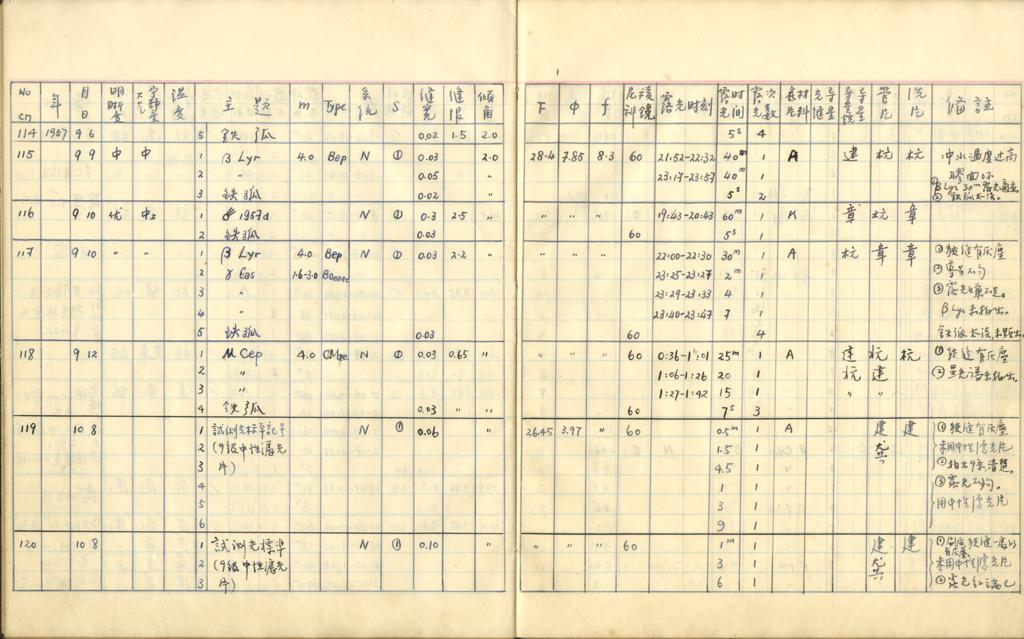 No cn 年 月 日 明晰度 大气宁静度 温度 主 题 m Type 系统 S 缝宽 缝限 倾角 F φ f 尼科 棱镜 露光时刻 露光时间 露光次数 底片 材料 导星 管片 洗片 備 註
114 1957 9 6 5 鉄 弧 0.02 1.5 2.0 5s 4
115 9 9 中 中 1 β Lyr 4.0 Bep N ① 0.03 2.0 28.4 7.85 8.3 60 21:52-22:32 40m 1 A 建 杭 杭 冲水温度过高
2 0.05 " 23:17-23:57 40m 1 膠面坏
3 鉄弧 0.02 " 5s 2 ① β Lyr 30m ②鉄弧太淡。
116 9 10 优 中上 1 1957d N ① 0.3 2.5 " " " " 19:43-20:43 60m 1 K 章 杭 章
2 鉄弧 0.03 60 5s 1
117 9 10 " " 1 β Lyr 4.0 Bep N ① 0.03 2.2 " " " " 22:00-22:30 30m 1 A 杭 章 章 ①狭缝有灰塵
2 γ Cas 1.6-3.0 B0nnec 23:25-23:27 2m 1 ②導星不匀
3 " 23:29-23:33 4 1 ③露光
4 " 23:40-23:47 7 1 β Lyr 未拍出。
5 鉄弧 0.03 60 4 鉄弧太淡,
118 9 12 1 μ Cep 4.0 N ① 0.03 0.65 " " " " 60 0:36-1:01 25m 1 A 建 杭 杭 ①狭缝有灰塵
2 " 1:06-1:26 20 1 杭 建 ②星光谱未拍出。
3 " 1:27-1:42 15 1 " "
4 鉄 弧 0.03 " " 60 7s 3
119 10 8 1 試測光标準記号 N ① 0.06 " 26.45 3.97 " 60 0.5m 1 A 建 建 ①狭缝有灰塵
2 (9级中性濾光 1.5 1 未用中性濾光片
3 片) 4.5 1 ②拍出9条清楚。
4 1 1 ③露光不夠。
5 3 1 用中性濾光片
6 9 1
120 10 8 1 試測光標準 N ① 0.10 " " " " 60 1m 1 建 建 ①
2 (9級中性濾光 3 1 未用中性濾光片
3 片) 6 1 ②露光红端已